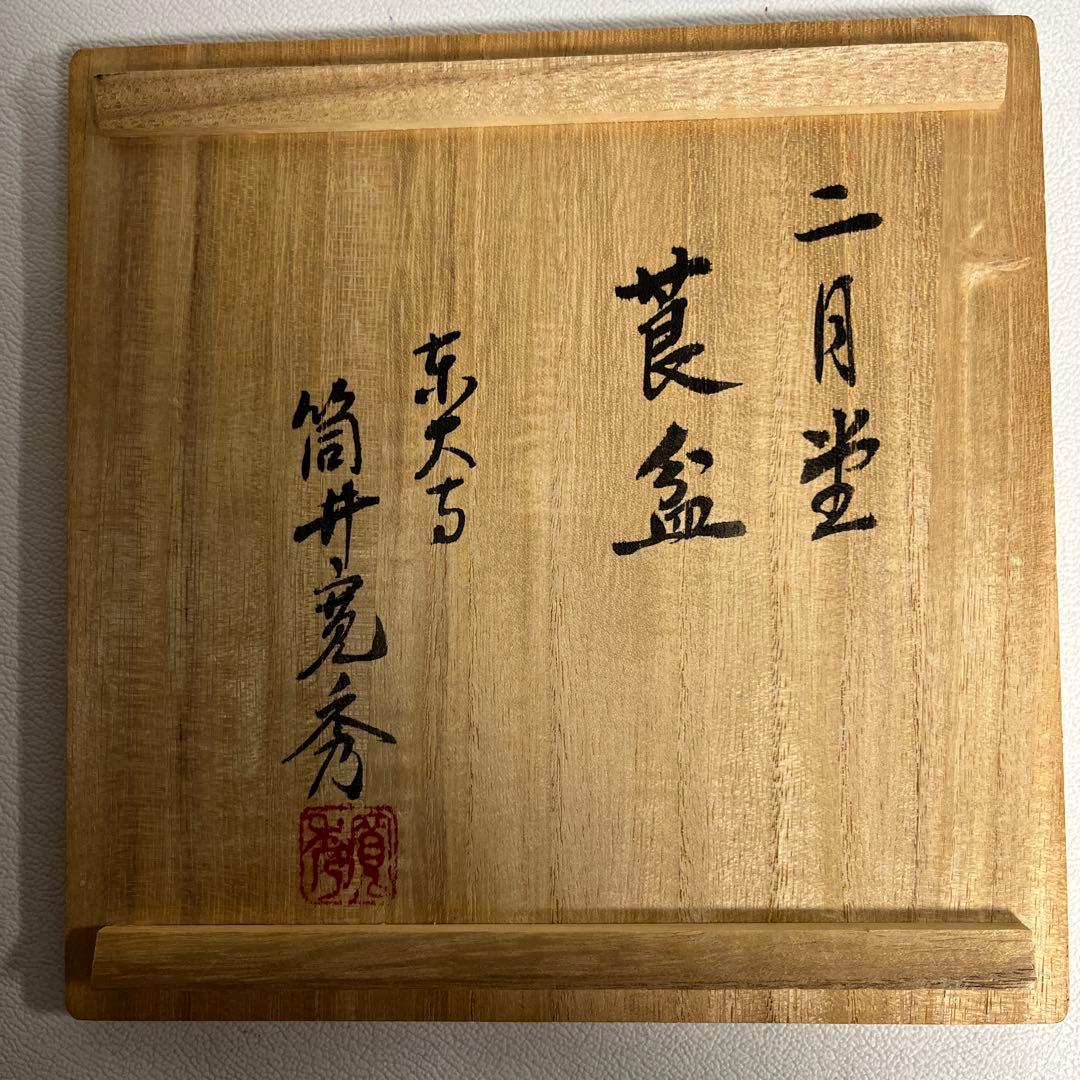 二月堂
莨盆
东大寺
筒井寛秀
寛秀